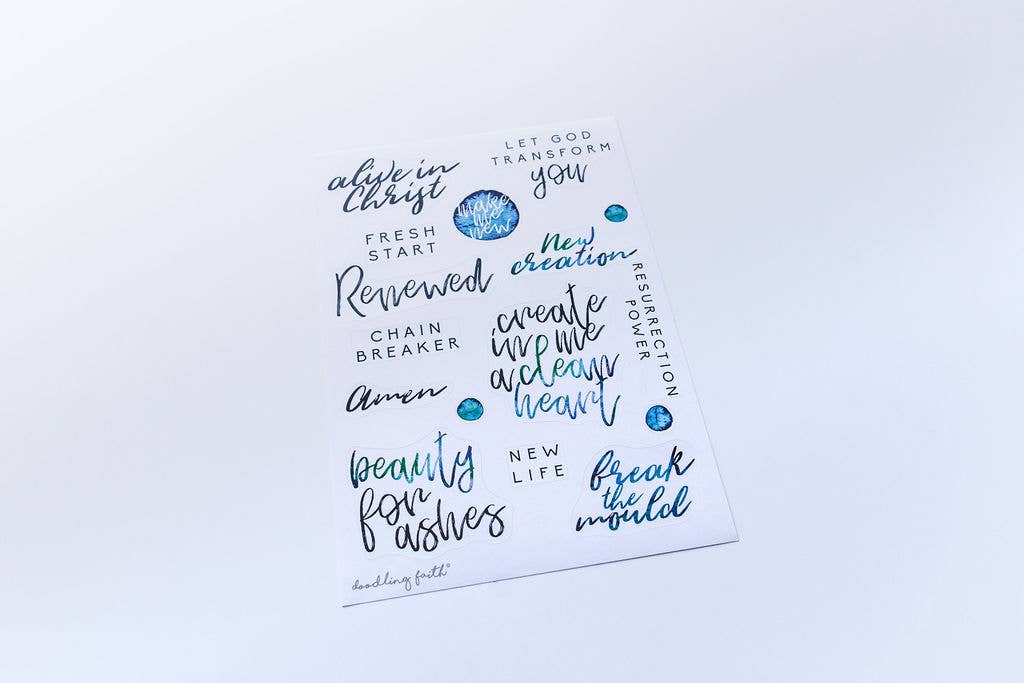 alive in
Christ
LET GOD
TRANSFORM
you
make
me
new
FRESH
START
New
creation
Renewed
RESURRECTION
POWER
CHAIN
BREAKER
create
in me
a clean
heart
amen
beauty
for
ashes
NEW
LIFE
break
the
mould
doodling faith®